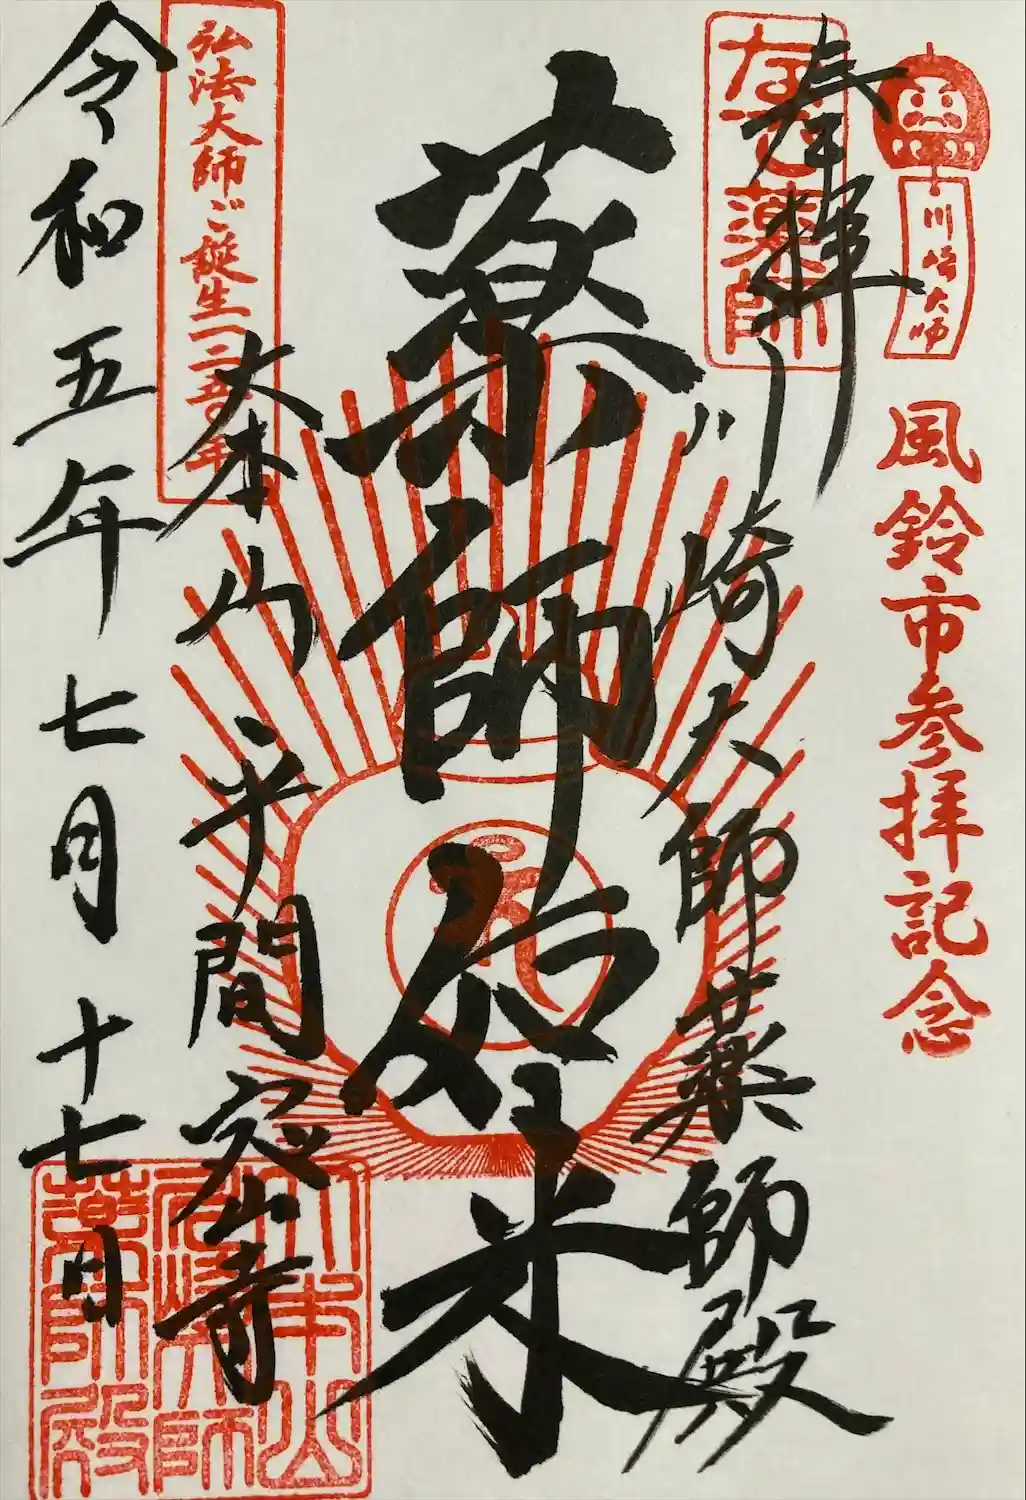 川崎大師
風鈴市参拝記念
奉拝
なで薬師
川崎大師薬師殿
薬師如来
弘法大師ご誕生一二五〇年
大本山平間寺
令和五年七月十七日
大本山
川崎大師
薬師殿